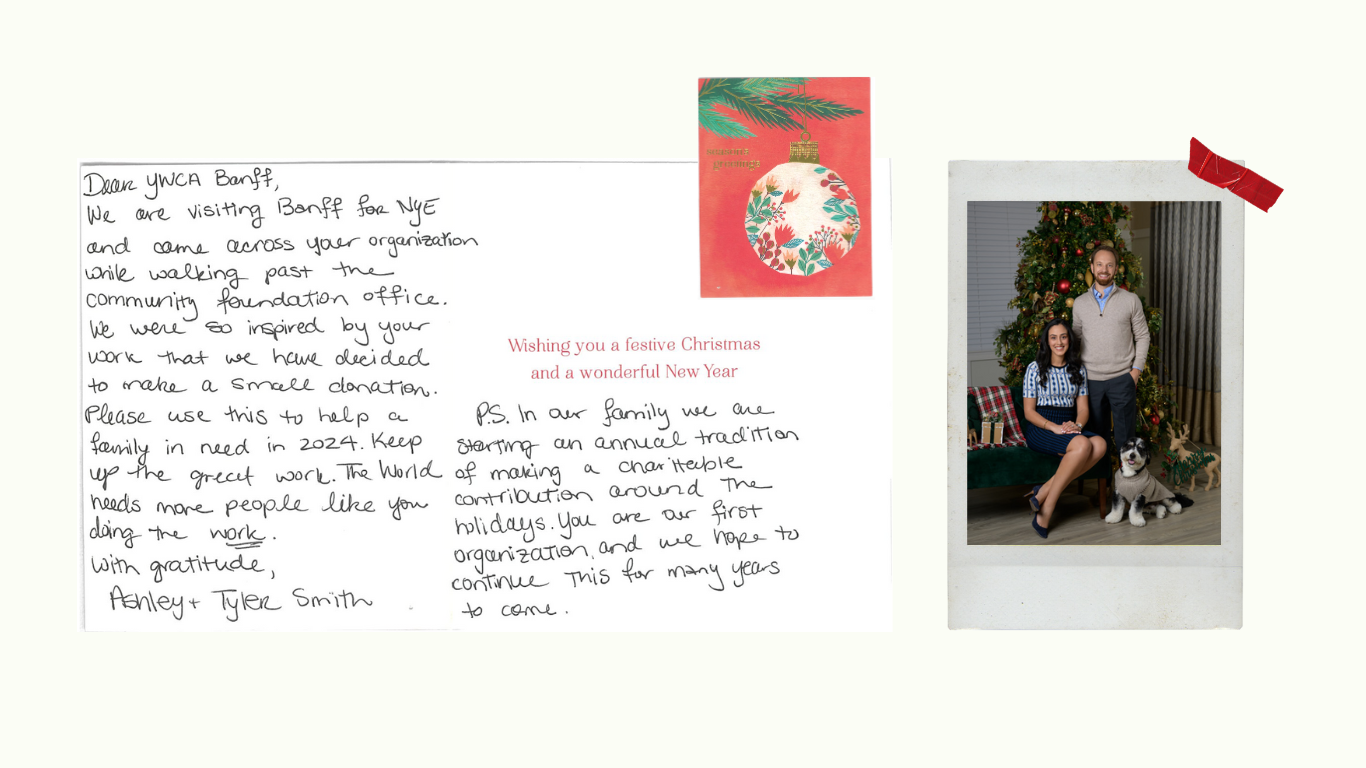 Dear YWCA Banff,
We are visiting Banff for NYE
and came across your organization
while walking past the
community foundation office.
We were so inspired by your
work that we have decided
to make a small donation.
Please use this to help a
family in need in 2024. Keep
up the great work. The World
needs more people like you
doing the work.
with gratitude,
Ashley + Tyler Smith
season's
greetings
Wishing you a festive Christmas
and a wonderful New Year
P.S. In our family we are
starting an annual tradition
of making a charitable
contribution around the
holidays. You are our first
organization, and we hope to
continue this for many years
to come.